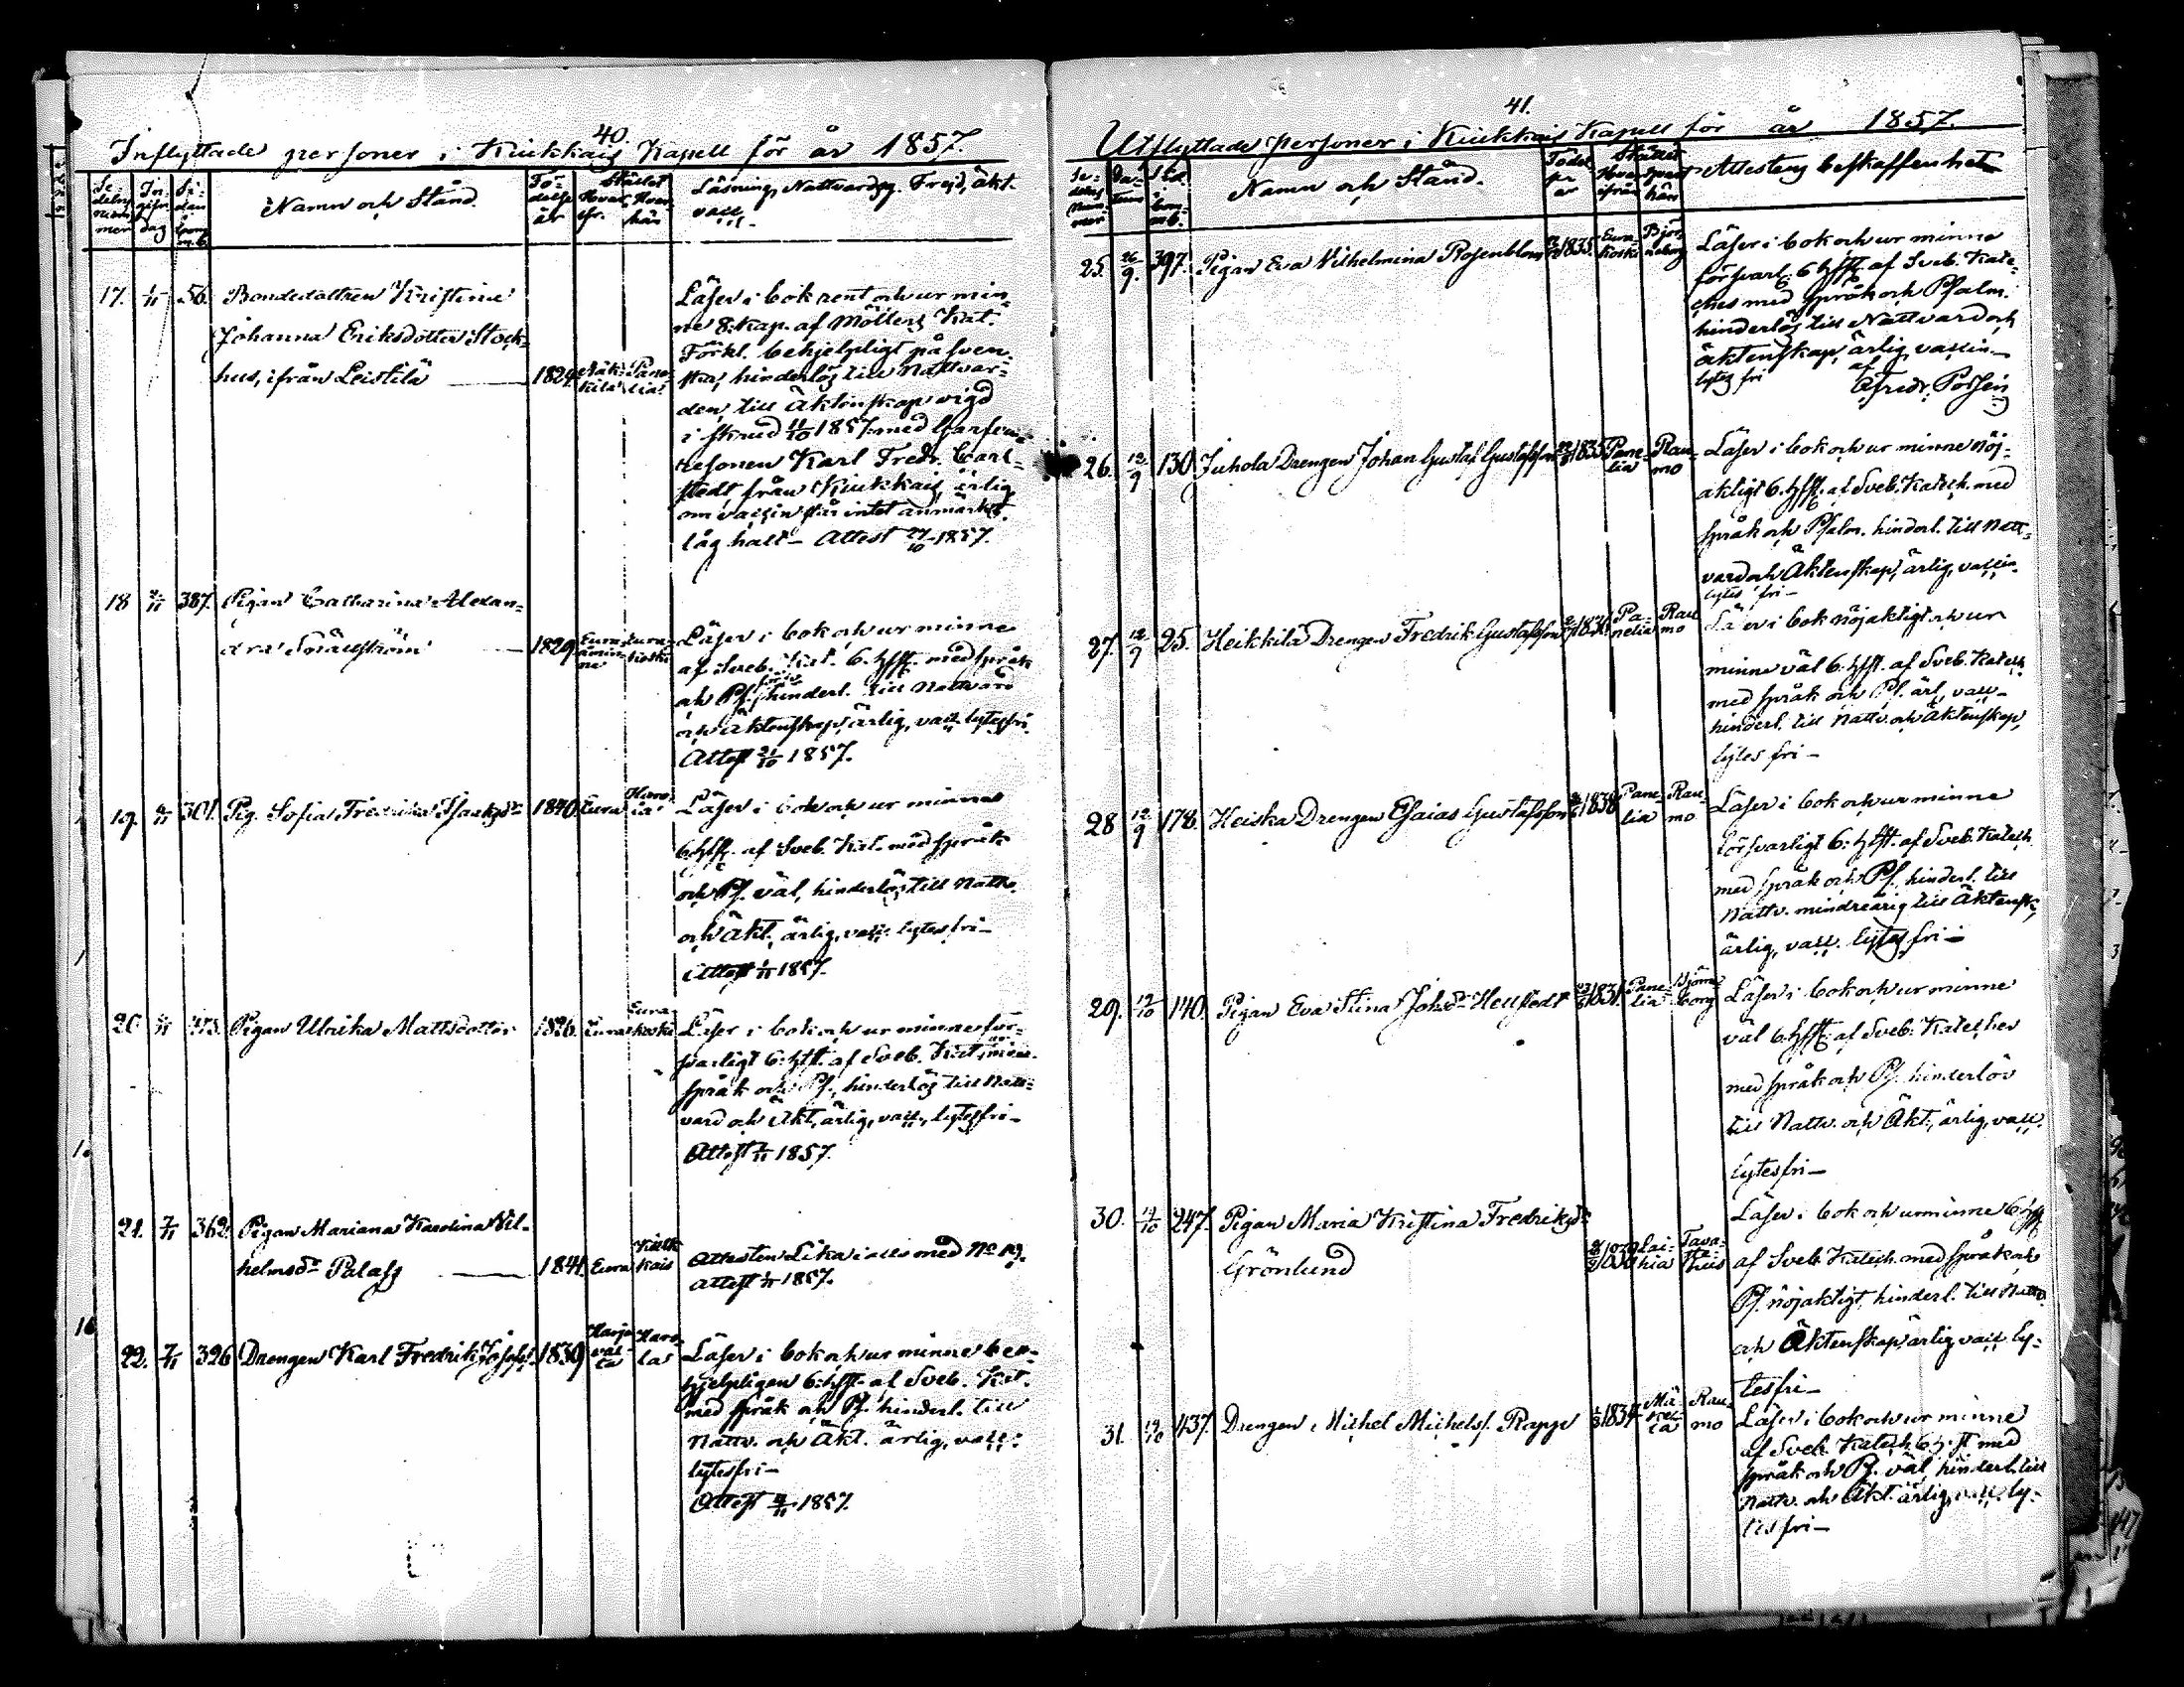 40.
Inflyttade personer i Kiukkais Kapell för år 1857.
Namn och Stånd.
Läsning, Nattvardsg. Frejd, äkt.
vacc.
17. 1/11 56. Bondedottren Kristina
Johanna Eriksdotter Stock-
hus, ifrån Leistilä 1829. Nak-kila Pane-lia
Läser i bok rent och ur min-
ne 8. Kap. af Möllers Kat.
Förkl. behjelpligt på sven-
ska, hinderlös till Nattvar-
den, till Äktenskap vigd
i skrud 11/10 1857 med
Karl Fredr. Carl-
stedt från Kiukkais, ärlig,
om vaccin står intet anmärkt.
låg halt – Attest 27/10 1857.
18 2/11 387. Pigan Catharina Alexan-
dra 1829. Eura-åmin-ne Eura-koski
Läser i bok och ur minne
af Sveb. Kat. 6. hfst. med språk
och Ps. hinderl. till Nattvard
och Äktenskap, ärlig, vacc. lytesfri.
Attest 21/10 1857.
19. 301. Pig. Sofia Fredrika Isaksdr 1840. Eura Haro-la
Läser i bok och ur minne
6. hfst. af Sveb. Kat. med språk
och Ps. väl, hinderlös till Nattv.
och Äkt. ärlig, vacc. lytesfri –
Attest 1/11 1857.
20 Pigan Ulrika Mattsdotter 1826. Eura Eura-koski
Läser i bok och ur minne för-
svarligt 6. hfst. af Sveb. Kat. med
språk och Ps., hinderlös till Natt-
vard och Äkt., ärlig, vacc., lytesfri –
Attest 1857.
21. 7/11 362. Pigan Mariana Karolina Vil-
helmsdr Palass 1841. Eura Kiuk-kais
Attesten Lika i allo med No 19.
Attest 1/11 1857.
22. 7/11 326 Drengen Karl Fredrik Josefss. 1839 Harja-val-ta Haro-la
Läser i bok och ur minne be-
hjelpligen 6. hfst. af Sveb. Kat.
med språk och Ps. hinderl. till
Nattv. och Äkt. ärlig, vacc.
lytesfri –
Attest 1857.
41.
Utflyttade personer i Kiukkais Kapell för år 1857.
Namn och Stånd.
Attestens beskaffenhet
25. 26/9. 397. Pigan Eva Vilhelmina Rosenblom 1835. Eura-koski Björ-neborg
Läser i bok och ur minne
försvarl. 6 hfst. af Sveb. Kate-
ches med språk och Psalm.
hinderlös till Nattvard och
äktenskap, ärlig, vaccin –
lytes fri af
Fredr. Polsein
26. 12/9 130. Juhola Drengen Johan Gustaf Gustafsson 1835 Pane-lia Rau-mo
Läser i bok och ur minne nöj-
aktigt 6. hfst. af Sveb. Katech. med
språk och Psalm. hinderl. till Natt-
vard och Äktenskap, ärlig, vaccin.
lytes fri –
27. 12/9 25. Heikkilä Drengen Fredrik Gustafsson Pa-nelia Rau-mo
Läser i bok nöjaktigt och ur
minne väl 6. hfst. af Sveb. Katech.
med språk och Ps. ärl., vacc. –
hinderl. till Nattv. och Äktenskap,
lytes fri –
28 12/9 178. Heiska Drengen Esaias Gustafsson 1838 Pane-lia Rau-mo
Läser i bok och ur minne
försvarligt 6. hfst. af Sveb. Katech.
med språk och Ps. hinderl. till
Nattv. mindreårig till Äktensk.,
ärlig, vacc. lytes fri –
29. 12/10 140. Pigan Eva Stina Johsdr Hellstedt 1831. Pane-lia Björne-borg
Läser i bok och ur minne
väl 6. hfst. af Sveb. Kateches
med språk och Ps. hinderlös
till Nattv. och Äkt., ärlig, vacc.
lytesfri –
30. 247. Pigan Maria Kristina Fredriksdr
Grönlund Lai-hia Tava-ste-hus
Läser i bok och ur minne 6 hfst
af Sveb. Katech. med språk och
Ps. nöjaktigt, hinderl. till Nattv.
och Äktenskap, ärlig, vacc. ly-
tesfri –
31. 437. Drengen Michel Michelss. Rapp 1834 Rau-mo
Läser i bok och ur minne
af Sveb. Katech. 6 hfst med
språk och Ps. väl, hinderl. till
Nattv. och Äkt. ärlig, vacc. ly-
tesfri –